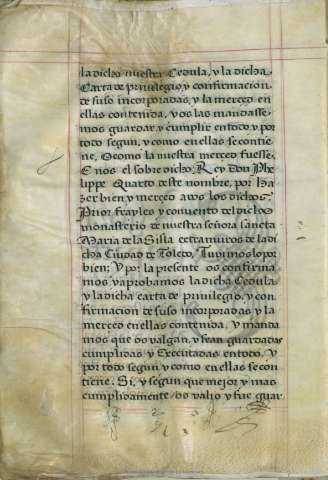 la dicha nuestra Cedula, y la dicha
Carta de priuilegio, y confirmacion
de suso incorporadas, y la merçed en
ellas contenida, y os las mandasse-
mos guardar, y cumplir en todo, y por
todo segun, y como en ellas se contie
ne, O como la nuestra merced fuesse,
E nos el sobre dicho, Rey Don Phe
lippe Quarto deste nombre, por ha
zer bien y merced a vos los dichos,
Prior frayles y conuento del dicho
monasterio de nuestra señora sancta
Maria de la Sisla extramuros de la di
cha Ciudad de Toledo, Tuuimos lo por
bien; Y por la presente os confirma
mos y aprobamos la dicha Cedula
y la dicha carta de priuilegio, y con
firmacion de suso incorporadas y la
merced en ellas contenida, Y manda
mos que os valgan, y sean guardadas
cumplidas, y Executadas en todo, y
por todo segun y como en ellas se con
tiene. Si, y segun que mejor y mas
cumplidamente os valio y fue guar